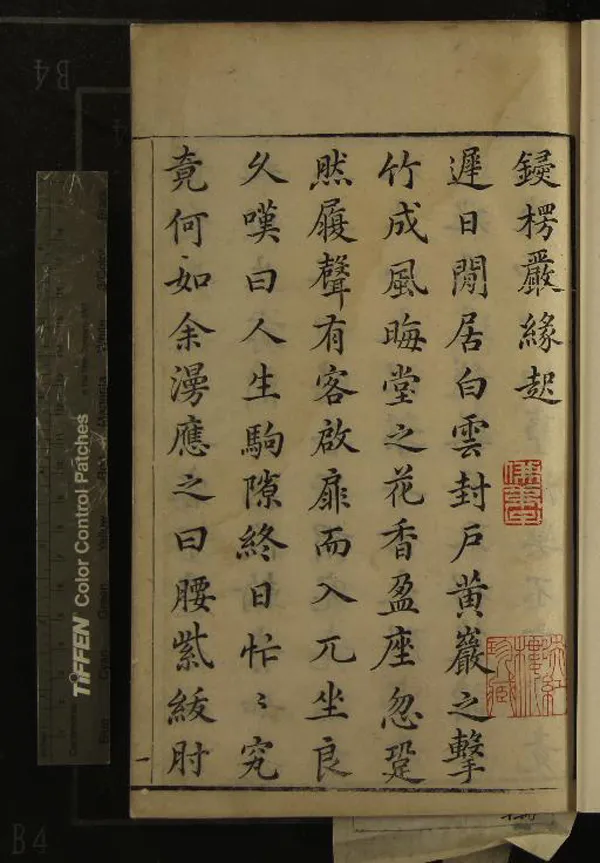 鋟楞嚴緣起
遲日閒居白雲封戶黃巖之擊
竹成風晦堂之花香盈座忽跫
然履聲有客啟扉而入兀坐良
久嘆曰人生駒隙終日忙〻究
竟何如余漫應之曰腰紫綬肘
一
TIFFEN Color Control Patches
B4
B4